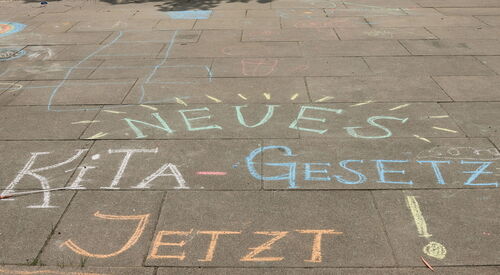 NEUES
KiTA-GESETZ
JETZT!